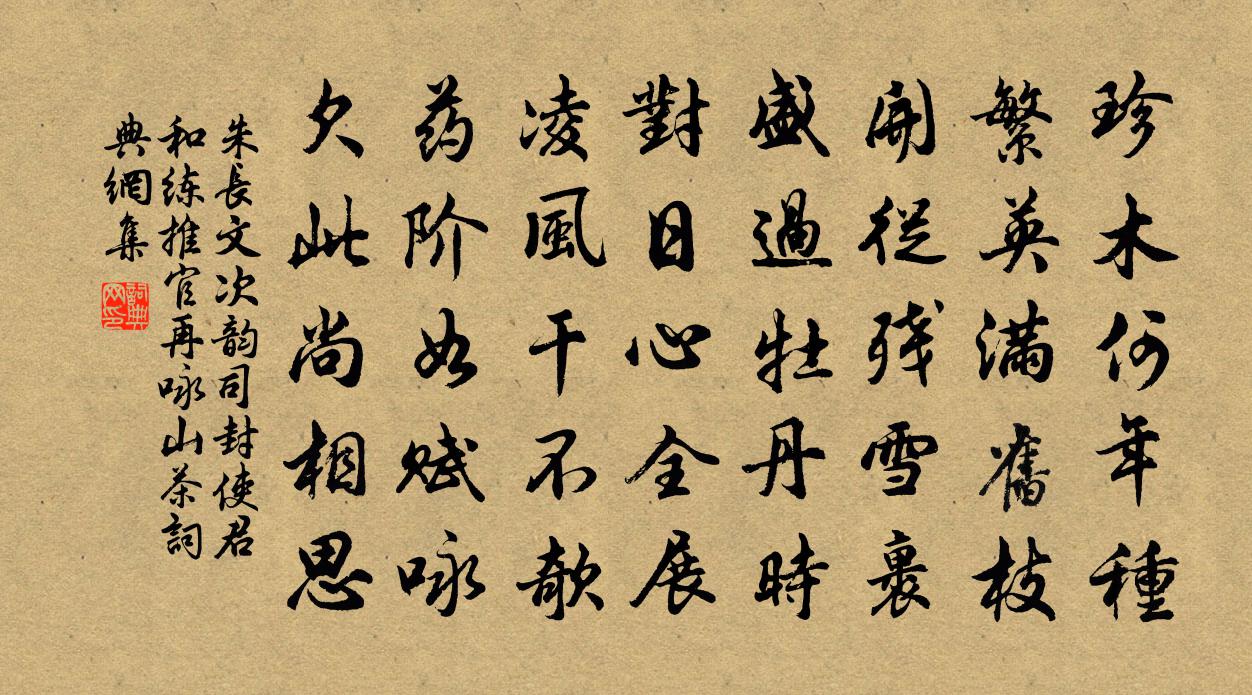 珍木何年種
繁英满舊枝
開從残雪裹
盛過牡丹時
對日心全展
凌風干不欹
药阶如赋咏
欠此尚相思
朱長文次韵司封使君
和练推官再咏山茶詞
典網集
詞典网印